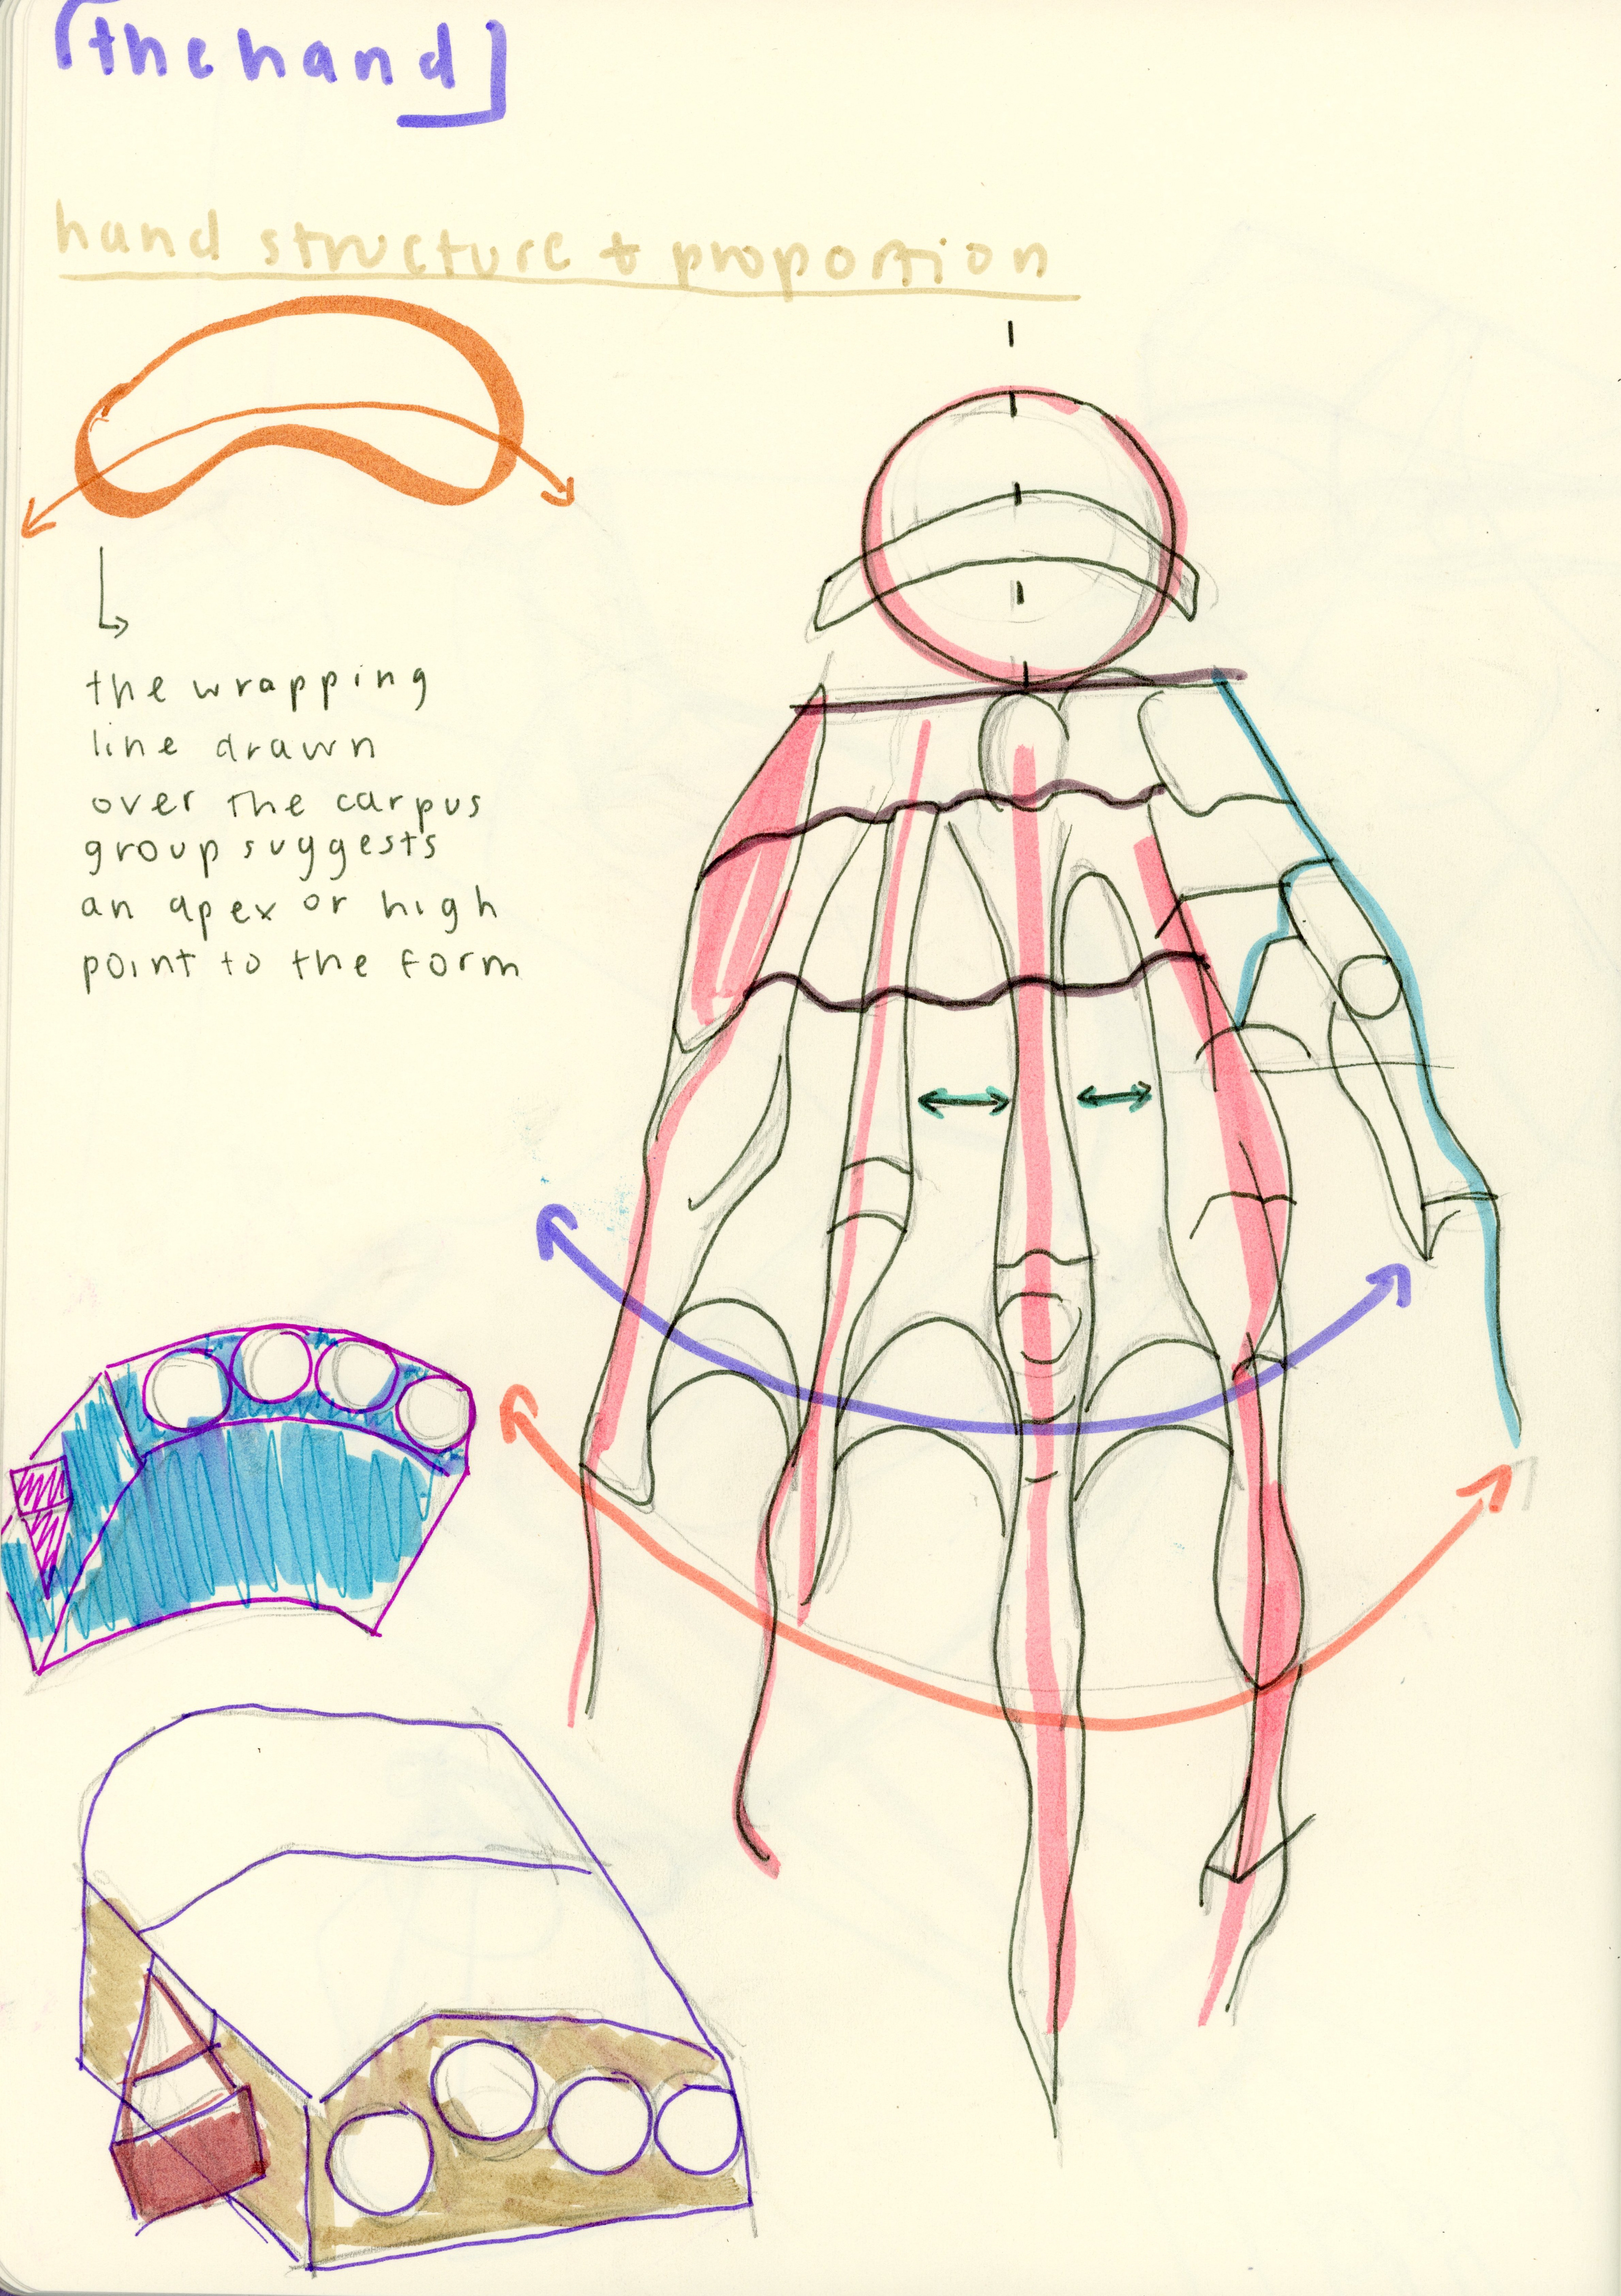 [the hand]
hand structure + proportion
the wrapping
line drawn
over the carpus
group suggests
an apex or high
point to the form